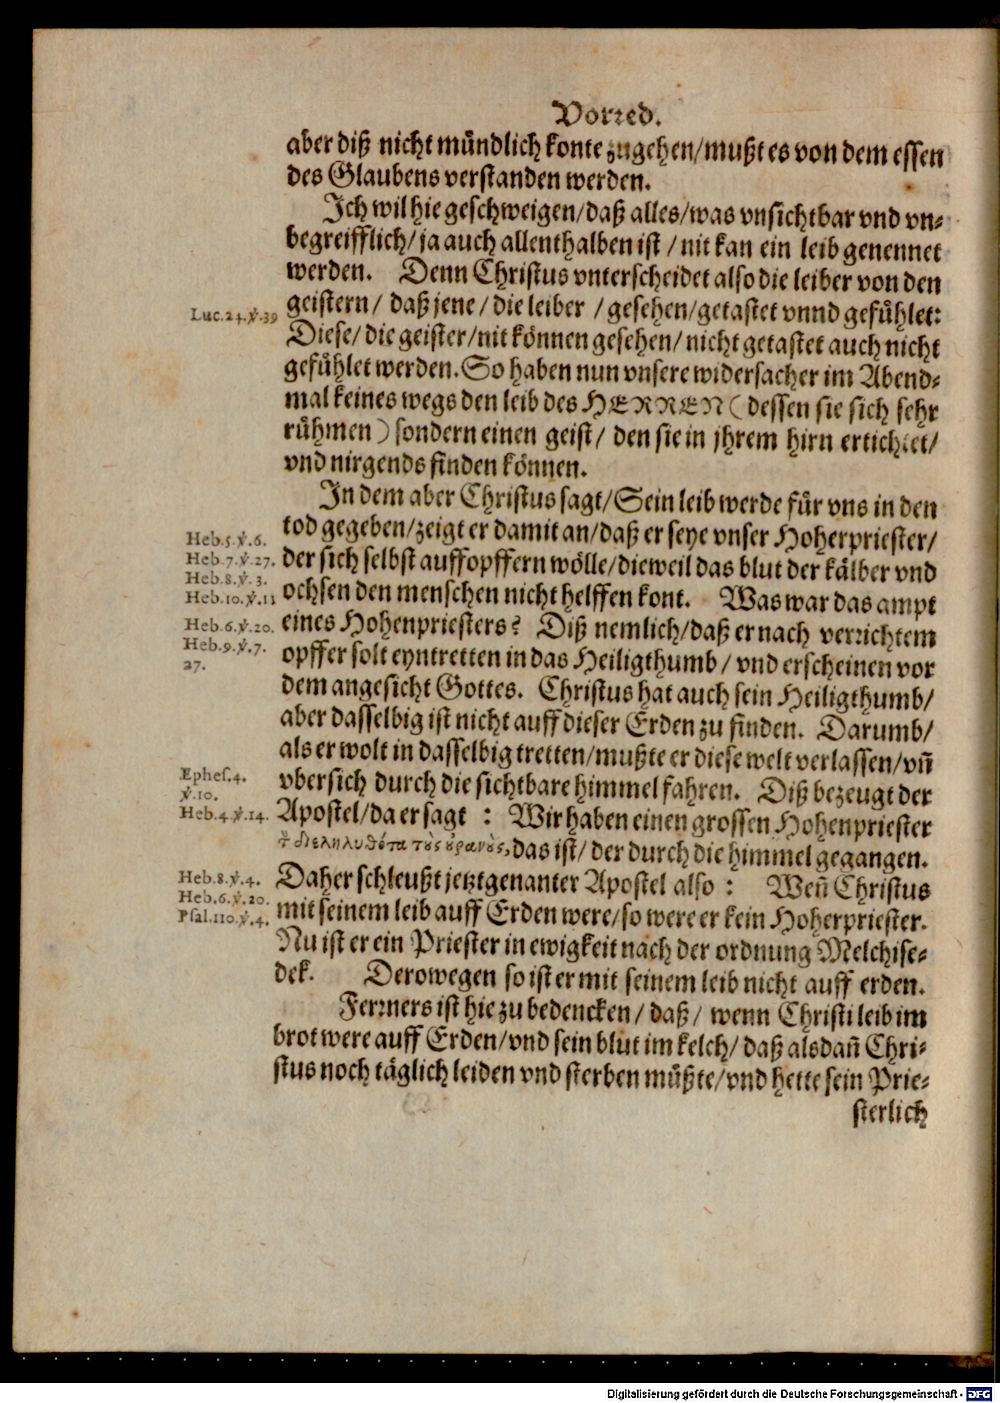 Vorred.
aber diß nicht mündlich konte zugehen/mußt es von dem essen
des Glaubens verstanden werden.
Ich wil hie geschweigen/daß alles/was vnsichtbar vnd vn-
begreifflich/ja auch allenthalben ist/nit kan ein leib genennet
werden. Denn Christus vnterscheidet also die leiber von den
Luc.24.℣.39 geistern/ daß jene/die leiber/gesehen/getastet vnnd gefühlet:
Diese/die geister/nit können gesehen/nicht getastet auch nicht
gefühlet werden. So haben nun vnsere widersacher im Abend-
mal keines wegs den leib des HERREN (dessen sie sich sehr
rühmen) sondern einen geist/ den sie in jhrem hirn ertichtet/
vnd nirgends finden können.
In dem aber Christus sagt/Sein leib werde für vns in den
tod gegeben/zeigt er damit an/daß er seye vnser Hoherpriester/
Heb.5.℣.6.
Heb.7.℣.27. der sich selbst auffopffern wölle/dieweil das blut der kälber vnd
Heb.8.℣.3.
Heb.10.℣.11 ochsen den menschen nicht helffen kont. Was war das ampt
Heb.6.℣.20. eines Hohenpriesters? Diß nemlich/daß er nach verrichtem
Heb.9.℣.7.
27. opffer solt eyntretten in das Heiligthumb/vnd erscheinen vor
dem angesicht Gottes. Christus hat auch sein Heiligthumb/
aber dasselbig ist nicht auff dieser Erden zu finden. Darumb/
als er wolt in dasselbig tretten/mußte er diese welt verlassen/vñ
Ephes.4.
℣.10. vbersich durch die sichtbare himmel fahren. Diß bezeugt der
Heb.4.℣.14. Apostel/da er sagt: Wir haben einen grossen Hohenpriester
διεληλυθότα τοὺς οὐρανοὺς, das ist/ der durch die himmel gegangen.
Heb.8.℣.4. Daher schleußt jetztgenanter Apostel also: Weñ Christus
Heb.6.℣.20.
Psal.110.℣.4. mit seinem leib auff Erden were/so were er kein Hoherpriester.
Nu ist er ein Priester in ewigkeit nach der ordnung Melchise-
dek. Derowegen so ist er mit seinem leib nicht auff erden.
Ferrners ist hie zu bedencken/ daß/ wenn Christi leib im
brot were auff Erden/vnd sein blut im kelch/ daß alsdañ Chri-
stus noch täglich leiden vnd sterben müßte/vnd hette sein Prie-
sterlich
Digitalisierung gefördert durch die Deutsche Forschungsgemeinschaft - DFG